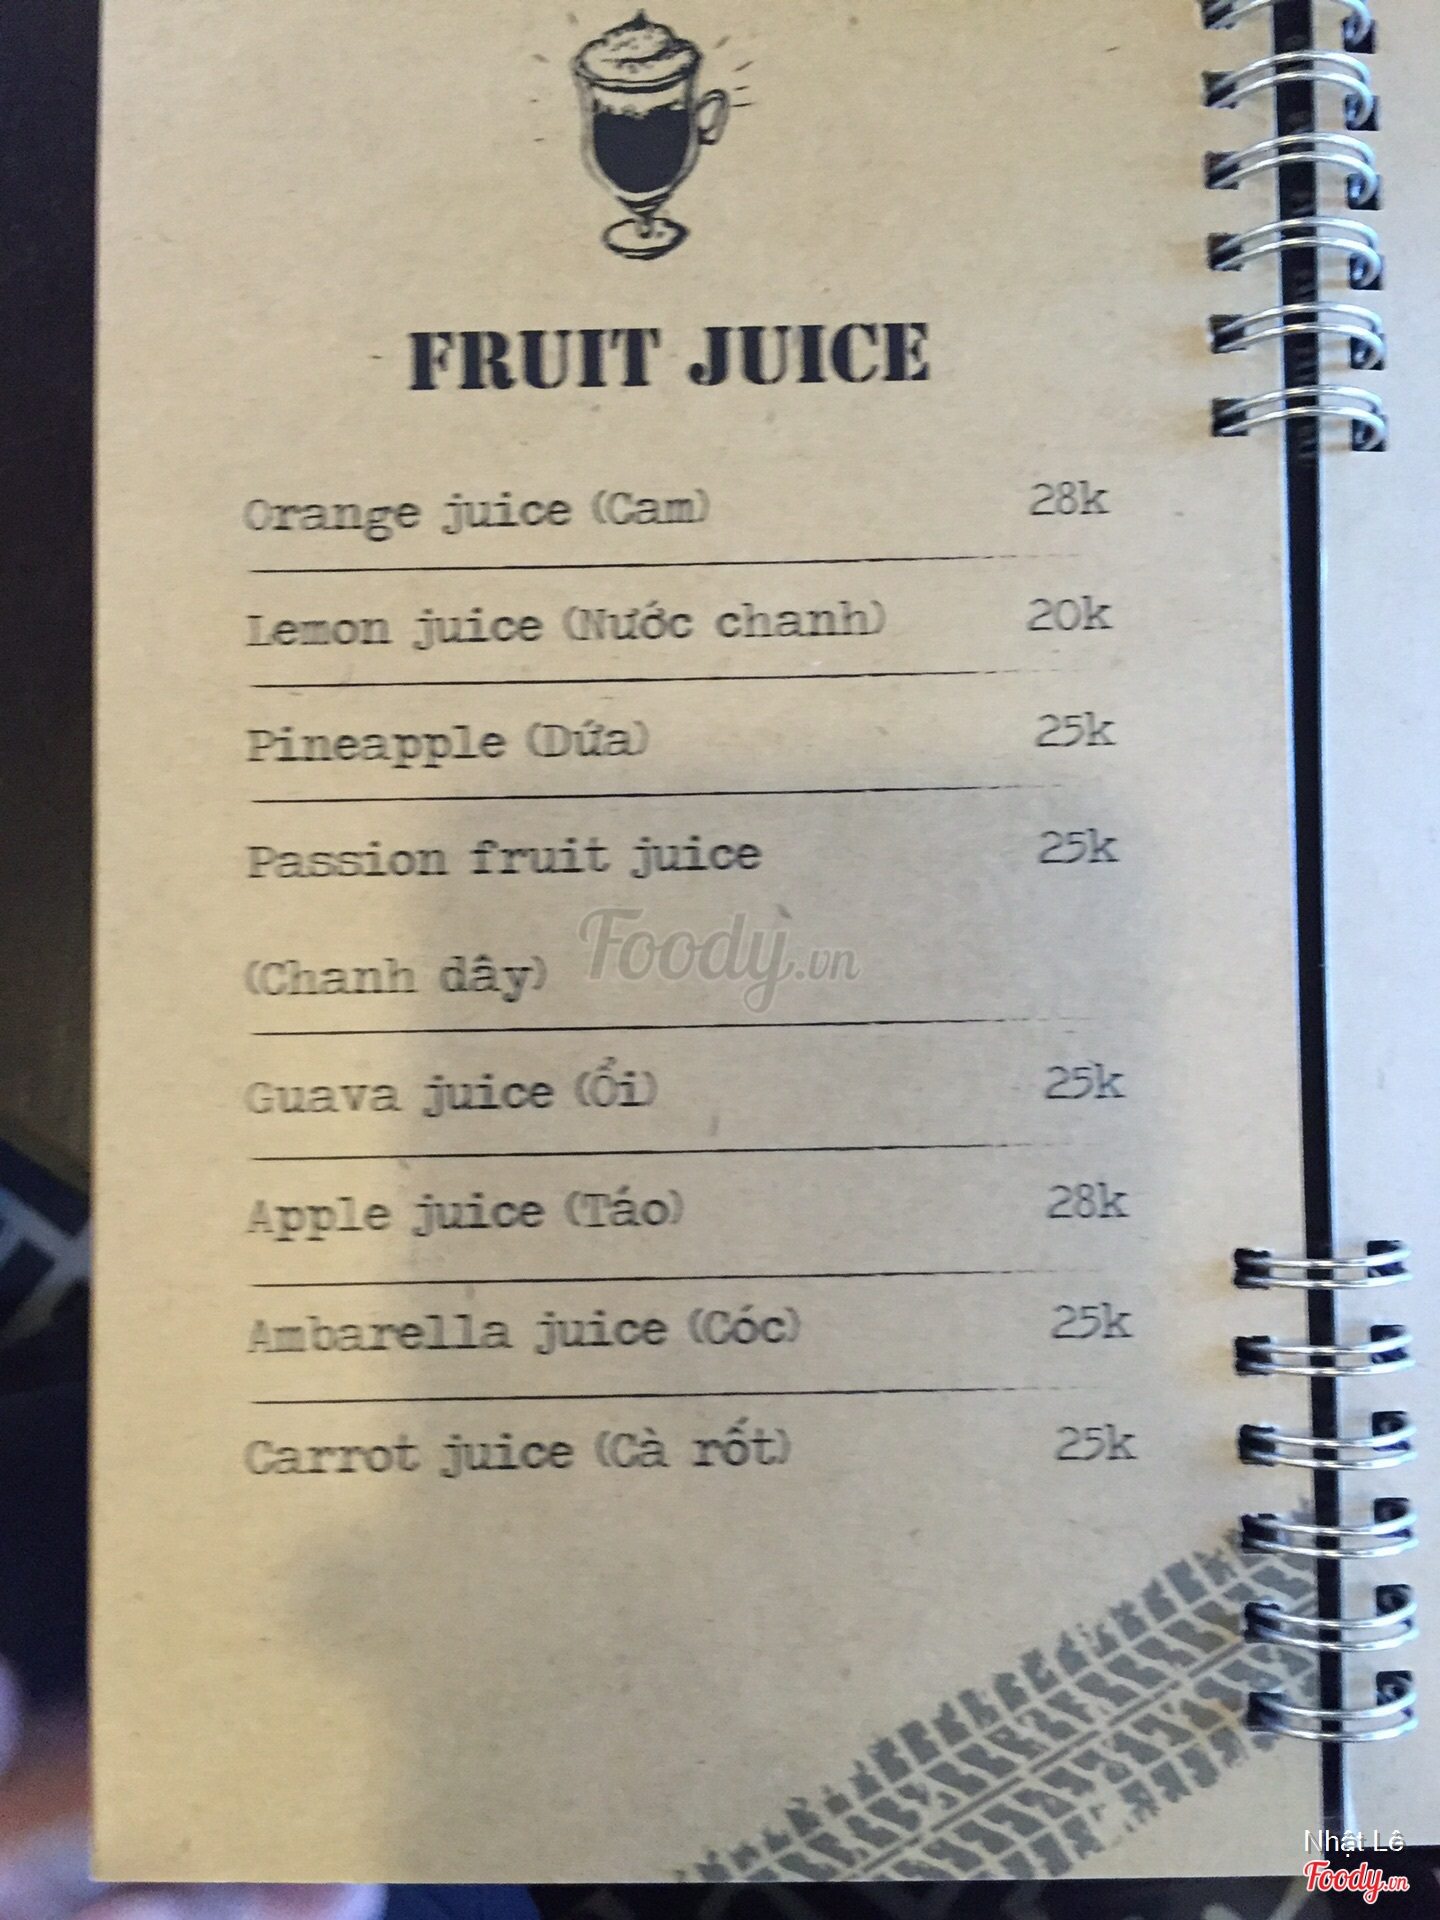 FRUIT JUICE
Orange juice (Cam) 28k
Lemon juice (Nước chanh) 20k
Pineapple (Dứa) 25k
Passion fruit juice 25k
(Chanh dây)
Foody.vn
Guava juice (Ổi) 25k
Apple juice (Táo) 28k
Ambarella juice (Cóc) 25k
Carrot juice (Cà rốt) 25k
Nhật Lê
Foody.vn